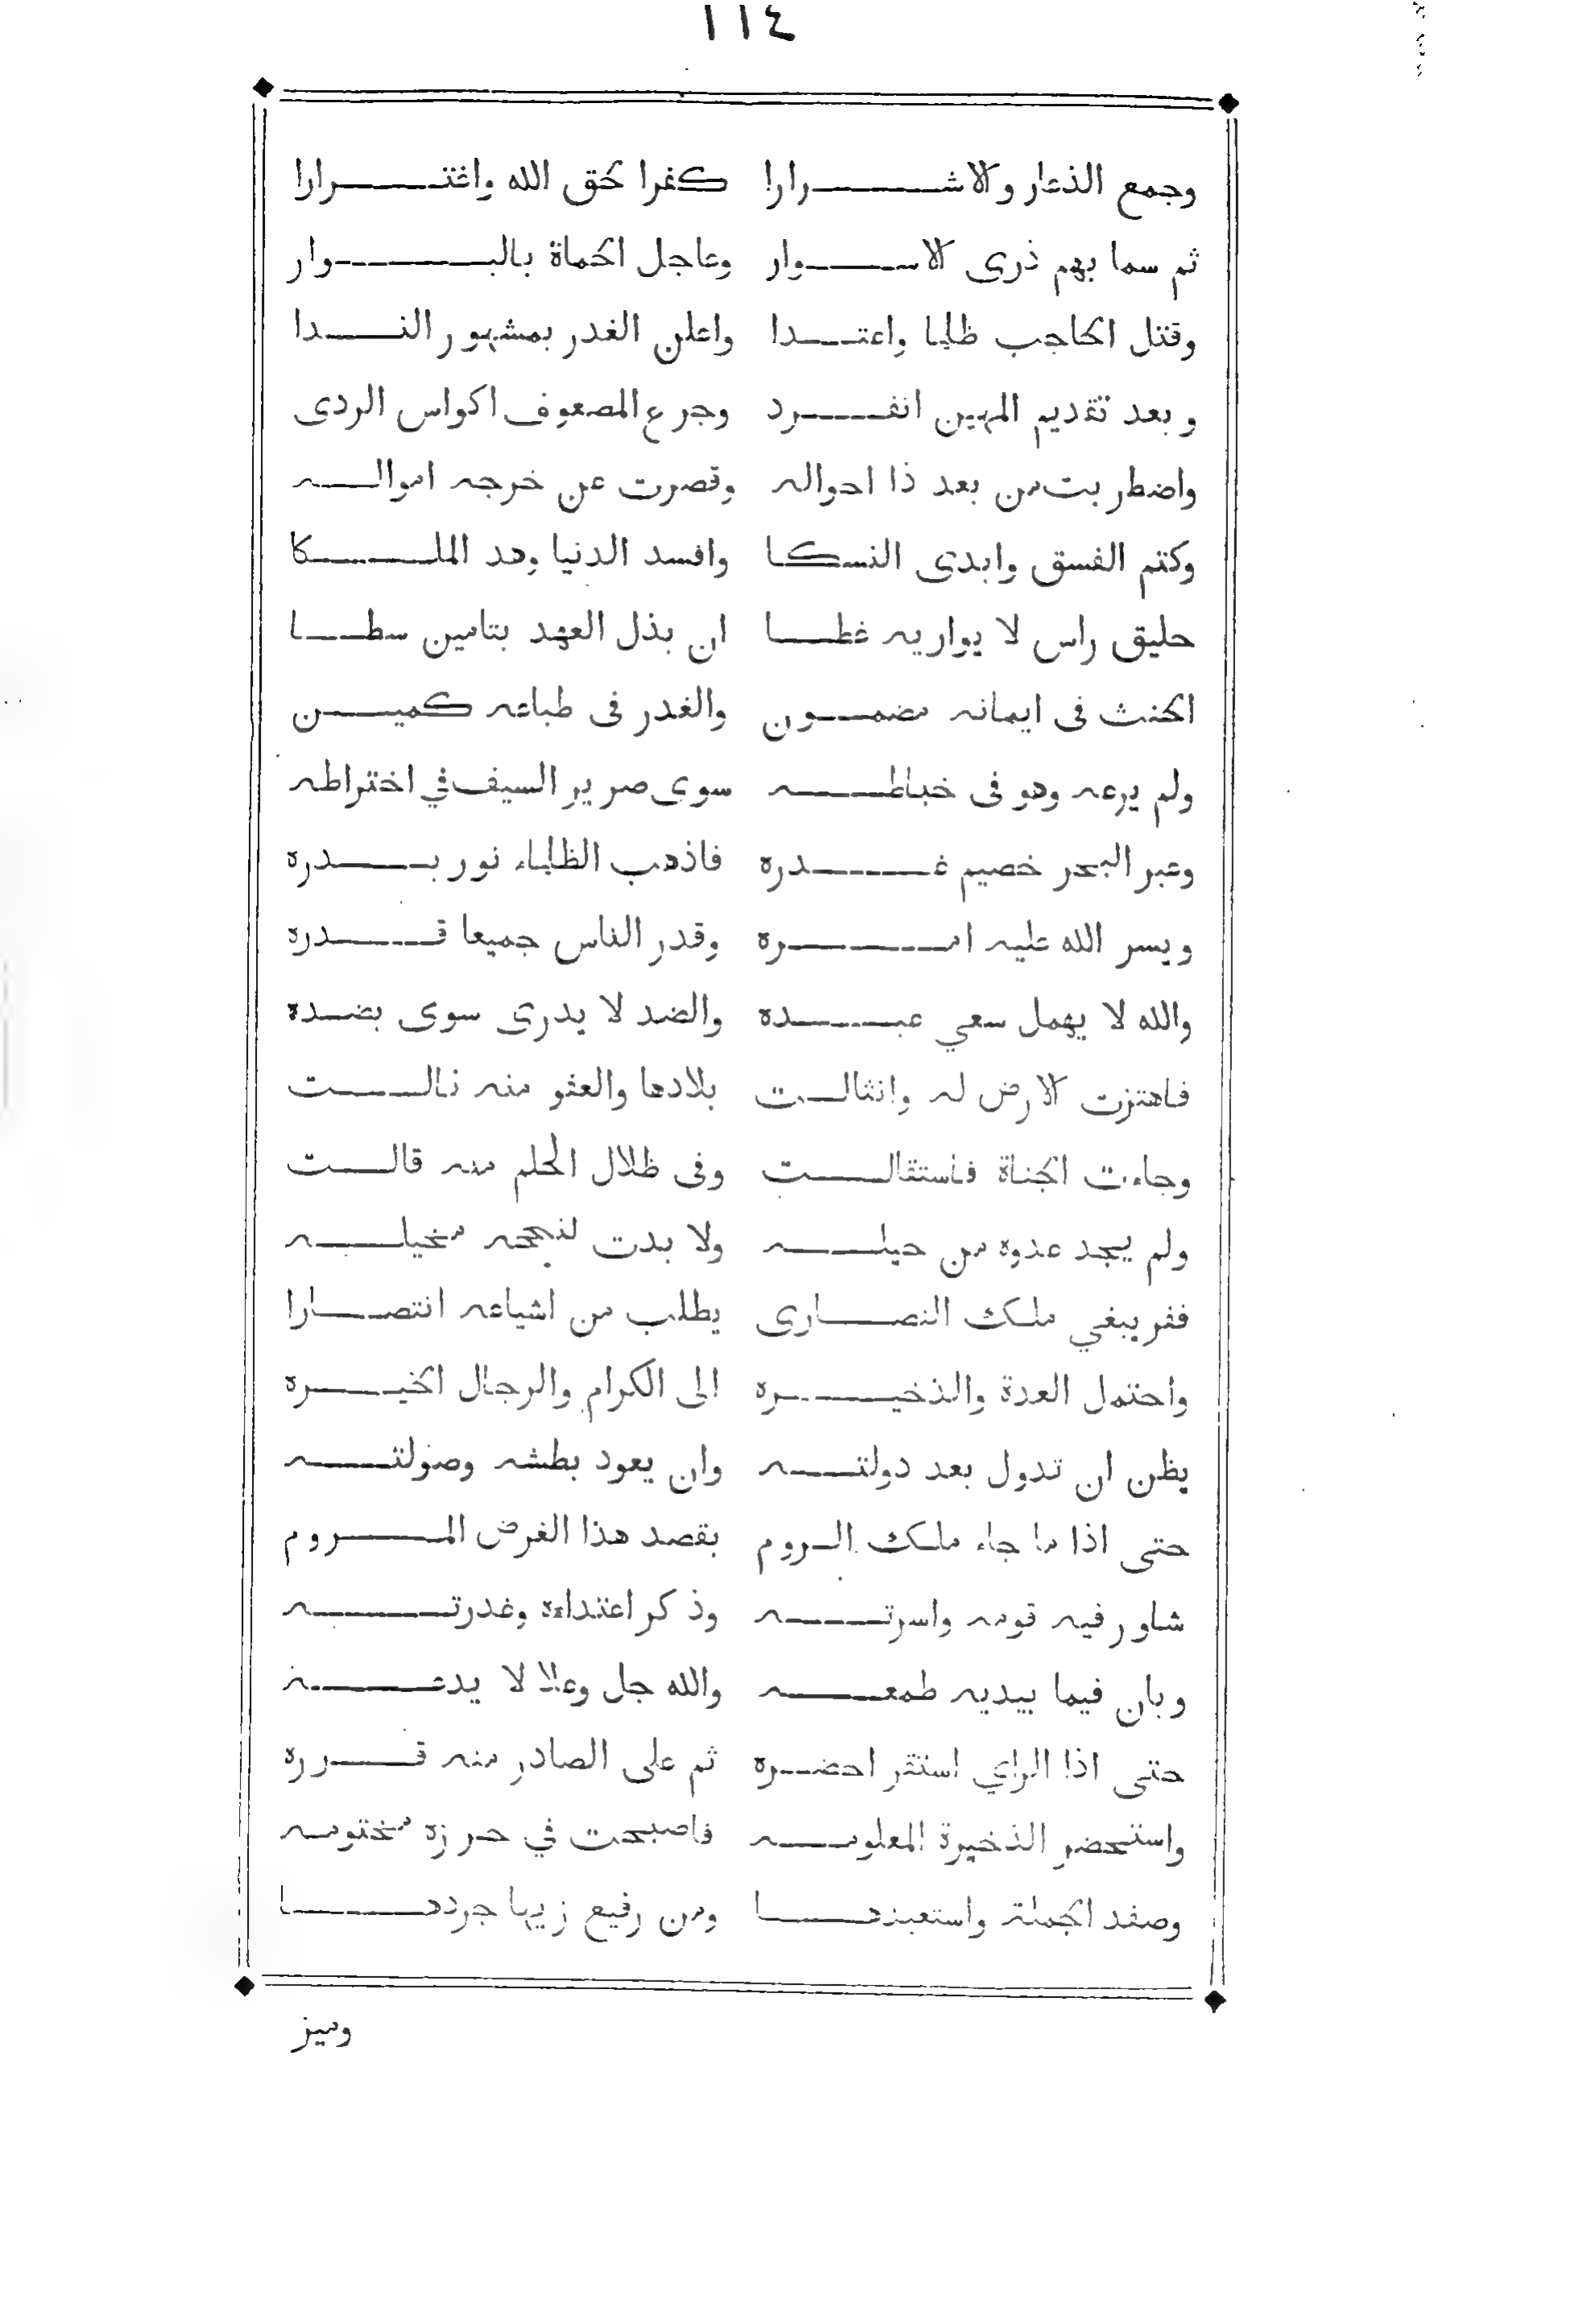 ١١٤
وجمع الذعار والاشرارا كفرا بحق الله واغترارا
ثم سما بهم ذرى الاسوار وعاجل الحماة بالبوار
وقتل الحاجب ظلما واعتدا واعلن الغدر بمشهور الندا
وبعد تقديم المهين انفرد وجرع المصعوف اكواس الردى
واضطربت من بعد ذا احواله وقصرت عن خرجه امواله
وكتم الفسق وابدى النسكا وافسد الدنيا وهد الملكا
حليق راس لا يواريه غطا ان بذل العهد بتامين سطا
الحنث فى ايمانه مضمون والغدر فى طباعه كمين
ولم يرعه وهو فى خباطه سوى صرير السيف في اختراطه
وعبر البحر خصيم غدره فاذهب الظلماء نور بدره
ويسر الله عليه امره وقدر الناس جميعا قدره
والله لا يهمل سعي عبده والضد لا يدرى سوى بضده
فاهتزت الارض له وانثالت بلادها والعثو منه نالت
وجاءت الجناة فاستقالت وفى ظلال الحلم منه قالت
ولم يجد عدوه من حيله ولا بدت لنجحه مخيله
ففر يبغي ملك النصارى يطلب من اشياعه انتصارا
واحتمل العدة والذخيره الى الكرام والرجال الخيره
يظن ان تدول بعد دولته وان يعود بطشه وصولته
حتى اذا ما جاء ملك الروم بقصد هذا الغرض المروم
شاور فيه قومه واسرته وذكر اعتداءه وغدرته
وبان فيما يبديه طمعه والله جل وعلا لا يدعه
حتى اذا الراي استقر احضره ثم على الصادر منه قرره
واستحضر الذخيرة المعلومه فاصبحت في حرزه مختومه
وصفد الجملة واستعبدها ومن رفيع زيها جردها
وميز